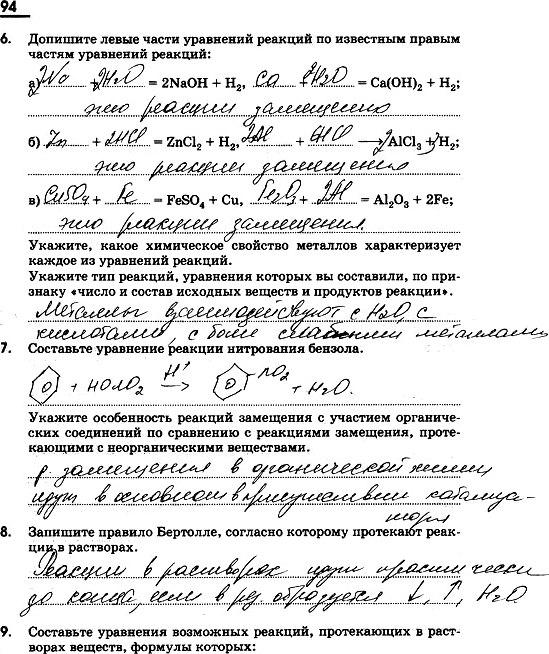 94
6. Допишите левые части уравнений реакций по известным правым
частям уравнений реакций:
а) 2Na + 2H₂O = 2NaOH + H₂, Ca + 2H₂O = Ca(OH)₂ + H₂;
это реакции замещения
б) Zn + 2HCl = ZnCl₂ + H₂, 2Al + 6HCl → 2AlCl₃ + 3H₂;
это реакции замещения
в) CuSO₄ + Fe = FeSO₄ + Cu, Fe₂O₃ + 2Al = Al₂O₃ + 2Fe;
это реакции замещения.
Укажите, какое химическое свойство металлов характеризует
каждое из уравнений реакций.
Укажите тип реакций, уравнения которых вы составили, по при-
знаку «число и состав исходных веществ и продуктов реакции».
Металлы взаимодействуют с H₂O, с
кислотами, с более слабыми металлами
7. Составьте уравнение реакции нитрования бензола.
+ HONO₂ H⁺ → NO₂ + H₂O.
Укажите особенность реакций замещения с участием органиче-
ских соединений по сравнению с реакциями замещения, проте-
кающими с неорганическими веществами.
р. замещения в органической химии
идут в основном в присутствии катализа-
тора
8. Запишите правило Бертолле, согласно которому протекают реак-
ции в растворах.
Реакции в растворах идут практически
до конца, если в рез. образуется ↓, ↑, H₂O
9. Составьте уравнения возможных реакций, протекающих в раст-
ворах веществ, формулы которых: